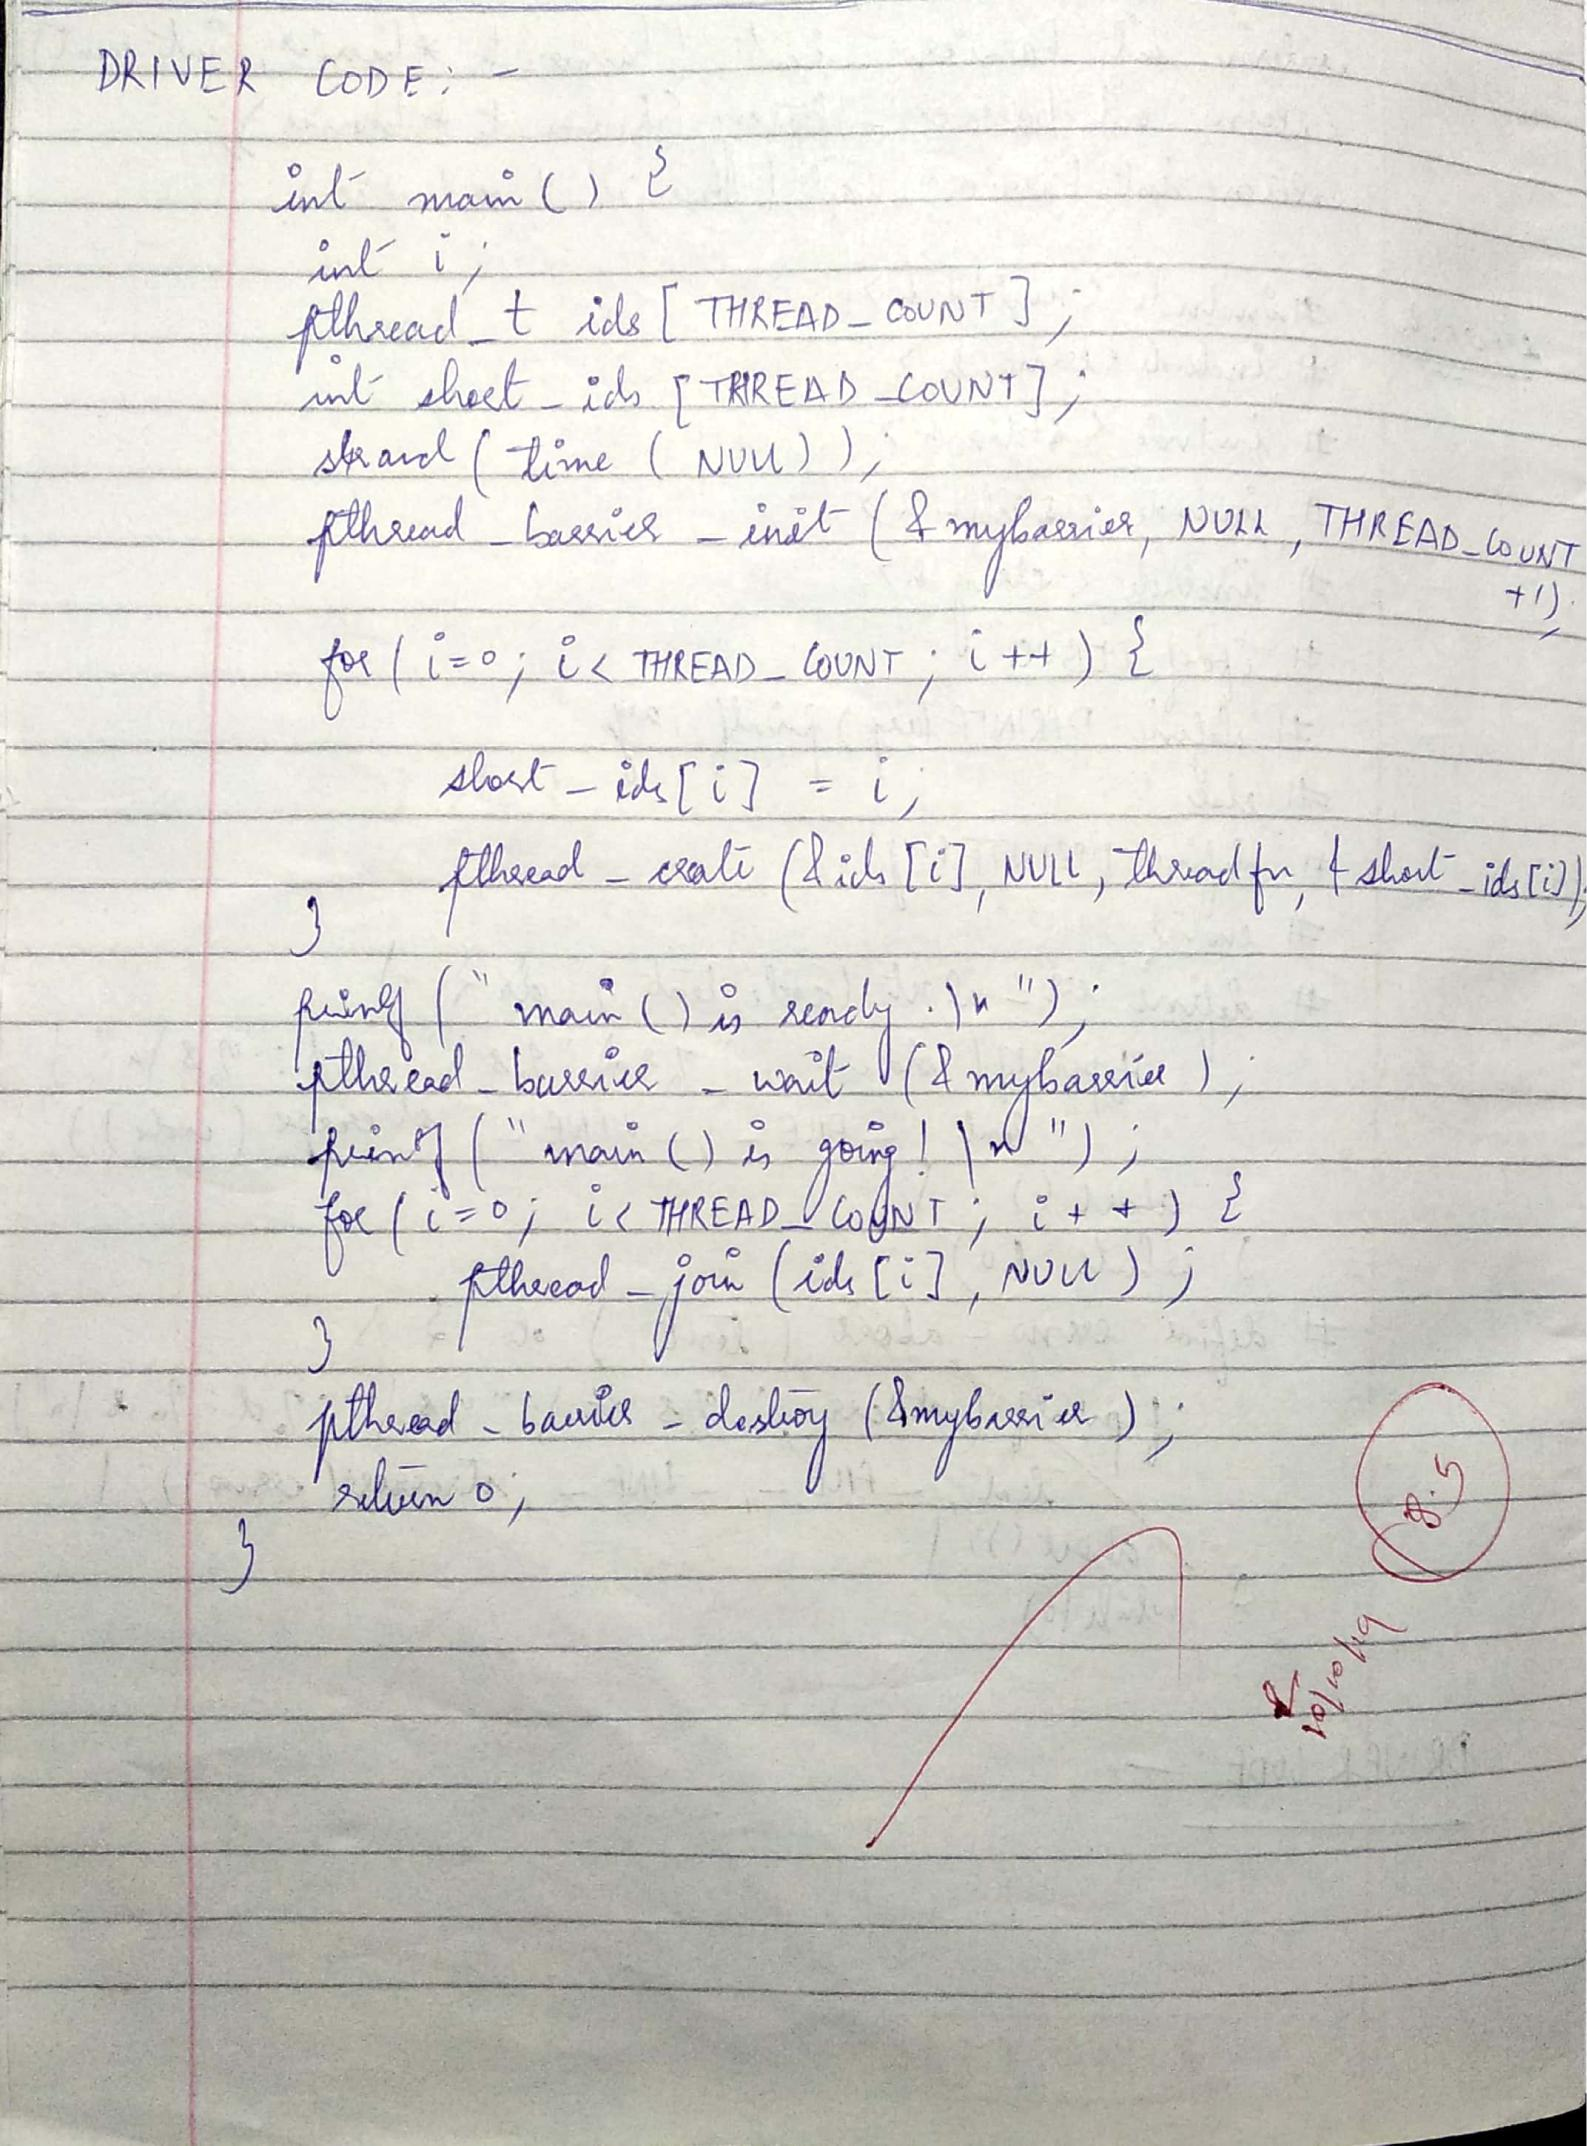 DRIVER CODE: -
int main() {
int i;
pthread_t ids[THREAD_COUNT];
int short_ids[THREAD_COUNT];
srand(time(NULL));
pthread_barrier_init(&mybarrier, NULL, THREAD_COUNT
+1);
for(i=0; i<THREAD_COUNT; i++) {
short_ids[i] = i;
pthread_create(&ids[i], NULL, threadfn, &short_ids[i]);
}
printf("main() is ready.\n");
pthread_barrier_wait(&mybarrier);
printf("main() is going!\n");
for(i=0; i<THREAD_COUNT; i++) {
pthread_join(ids[i], NULL);
}
pthread_barrier_destroy(&mybarrier);
return 0;
}
8.5
10/10/19